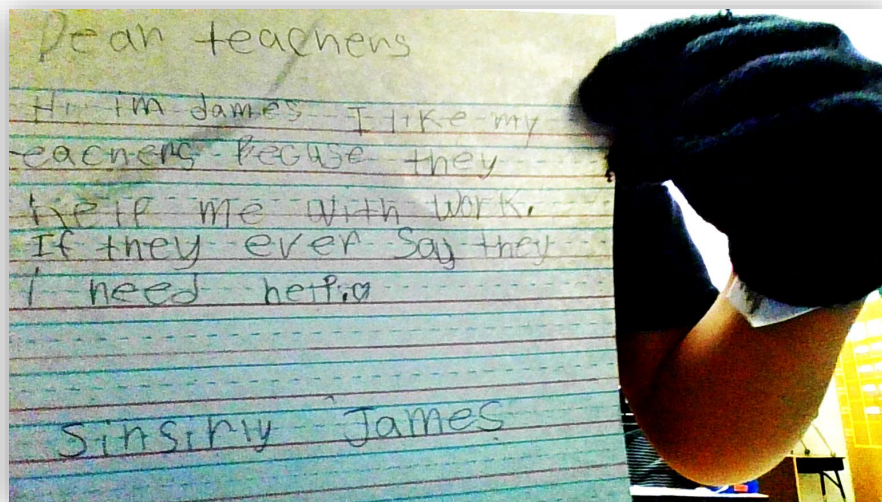 Dear teachers
Hi im James I like my
eachers Becuse they
help me with work.
If they ever say they
I need help.
Sinsirly James